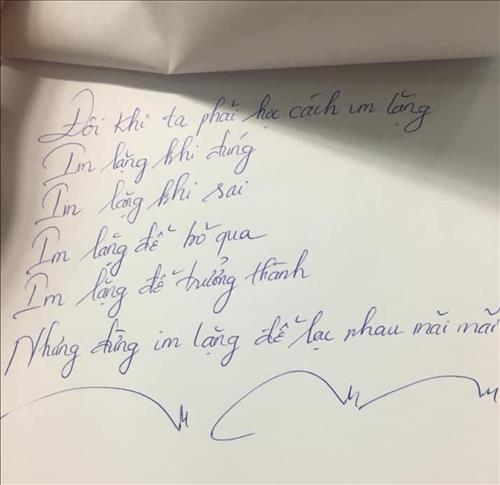 Đôi khi ta phải học cách im lặng
Im lặng khi đúng
Im lặng khi sai
Im lặng để bỏ qua
Im lặng để trưởng thành
Nhưng đừng im lặng để lạc nhau mãi mãi